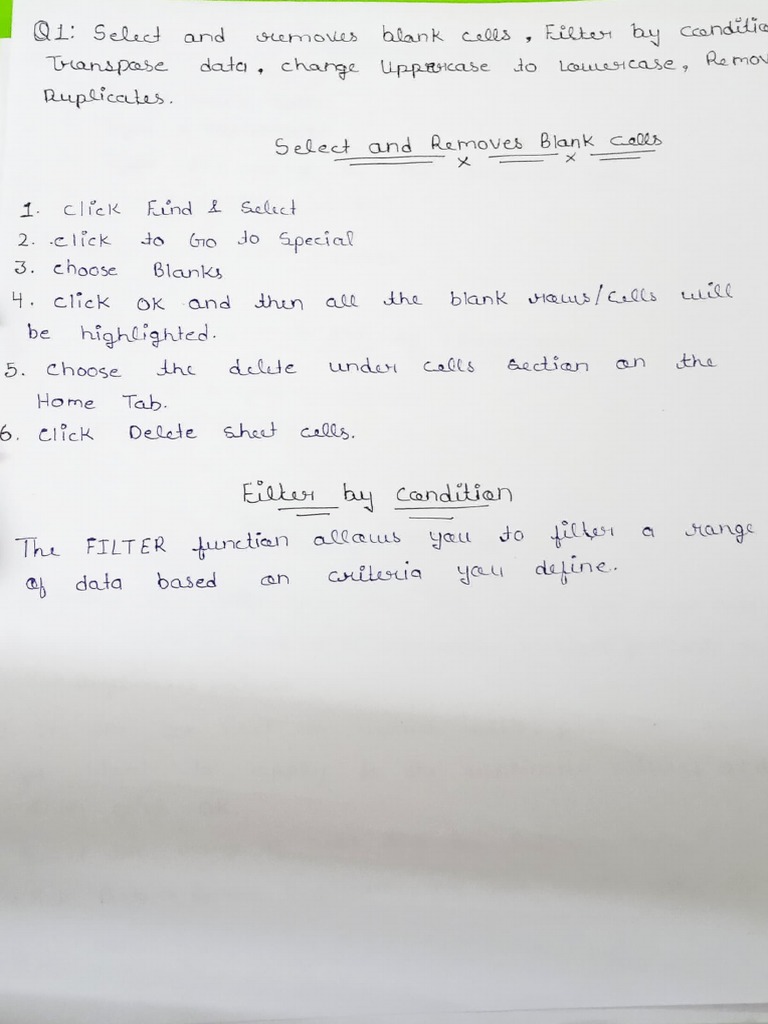 Q1: Select and removes blank cells, Filter by conditio
Transpose data, change Uppercase to Lowercase, Remov
Duplicates.
Select and Removes Blank Cells
x x
1. Click Find & Select
2. click to Go to Special
3. Choose Blanks
4. Click OK and then all the blank rows/cells will
be highlighted.
5. Choose the delete under cells section on the
Home Tab.
6. Click Delete sheet cells.
Filter by Condition
The FILTER function allows you to filter a range
of data based on criteria you define.